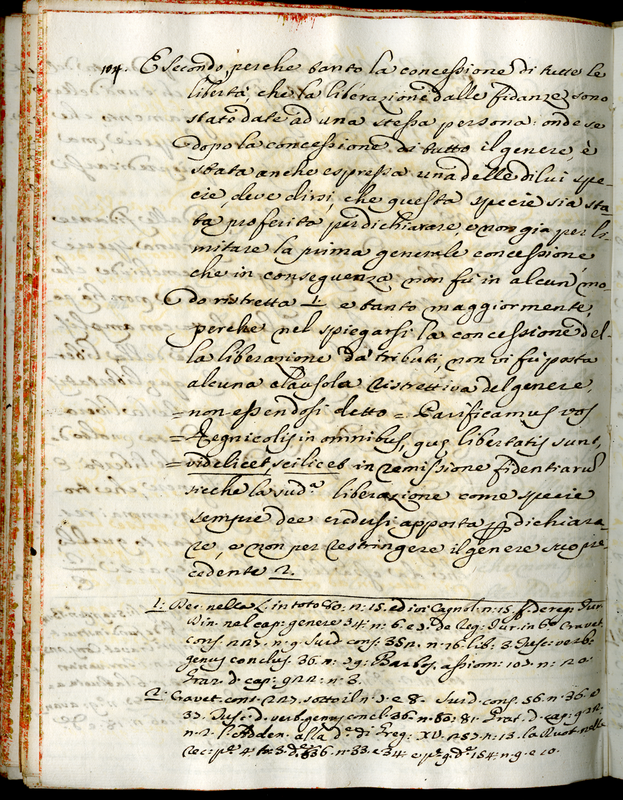 104. E Secondo, perche tanto la concessione di tutte le
libertà, che la liberazione dalle fidanze sono
state date ad una stessa persona: onde se
dopo la concessione di tutto il genere, è
stata anche espressa una delle di lui spe-
cie, deve dirsi, che questa specie sia sta-
ta proferita per dichiarare, e non già per li-
mitare la prima generale concessione,
che in conseguenza non fù in alcun mo-
do ristretta 1. e tanto maggiormente,
perche nel spiegarsi la concessione del-
la liberazione da' tributi, non vi fù posta
alcuna clausola ristrettiva del genere,
= non essendosi detto = Parificamus vos
= Regnicolis in omnibus, que libertatis sunt,
= videlicet scilicet in remissione fidentiarum
sicche la sud.a liberazione come specie
sempre dee credersi apposta per dichiara-
re, e non per restringere il genere suo pre-
cedente 2.
1: Dec. nella L. in toto 80: n: 15. ed ivi Cagnol: n: 15. ff. de reg: Jur
Din. nel cap: genere 34: n: 6. e de Reg: Jur. in 6.o Cravet.
cons. n. 9. Surd. cons: 352. n. 16. lib: 3. Tusc: verb:
genus conclus. 36. n: 29: Barbos. assiom: n: 20.
Graz. d. cap: 922: n: 3.
2. Cravet. cons. 227. sotto il n. 7. e 8. Surd. cons. 56. n. 36. e
37. Tusc. d. verb. genus concl. 36. n: 80: 81. Graz. d. cap: 922.
n. 2. l'Adden. alla d. di Greg: XV. 257. n: 13. la Ruot. nelle
rec: p.e 4. to: 3. d. 536. n: 33. e 34. e p.e 9. d. 154: n: 9. e 10.